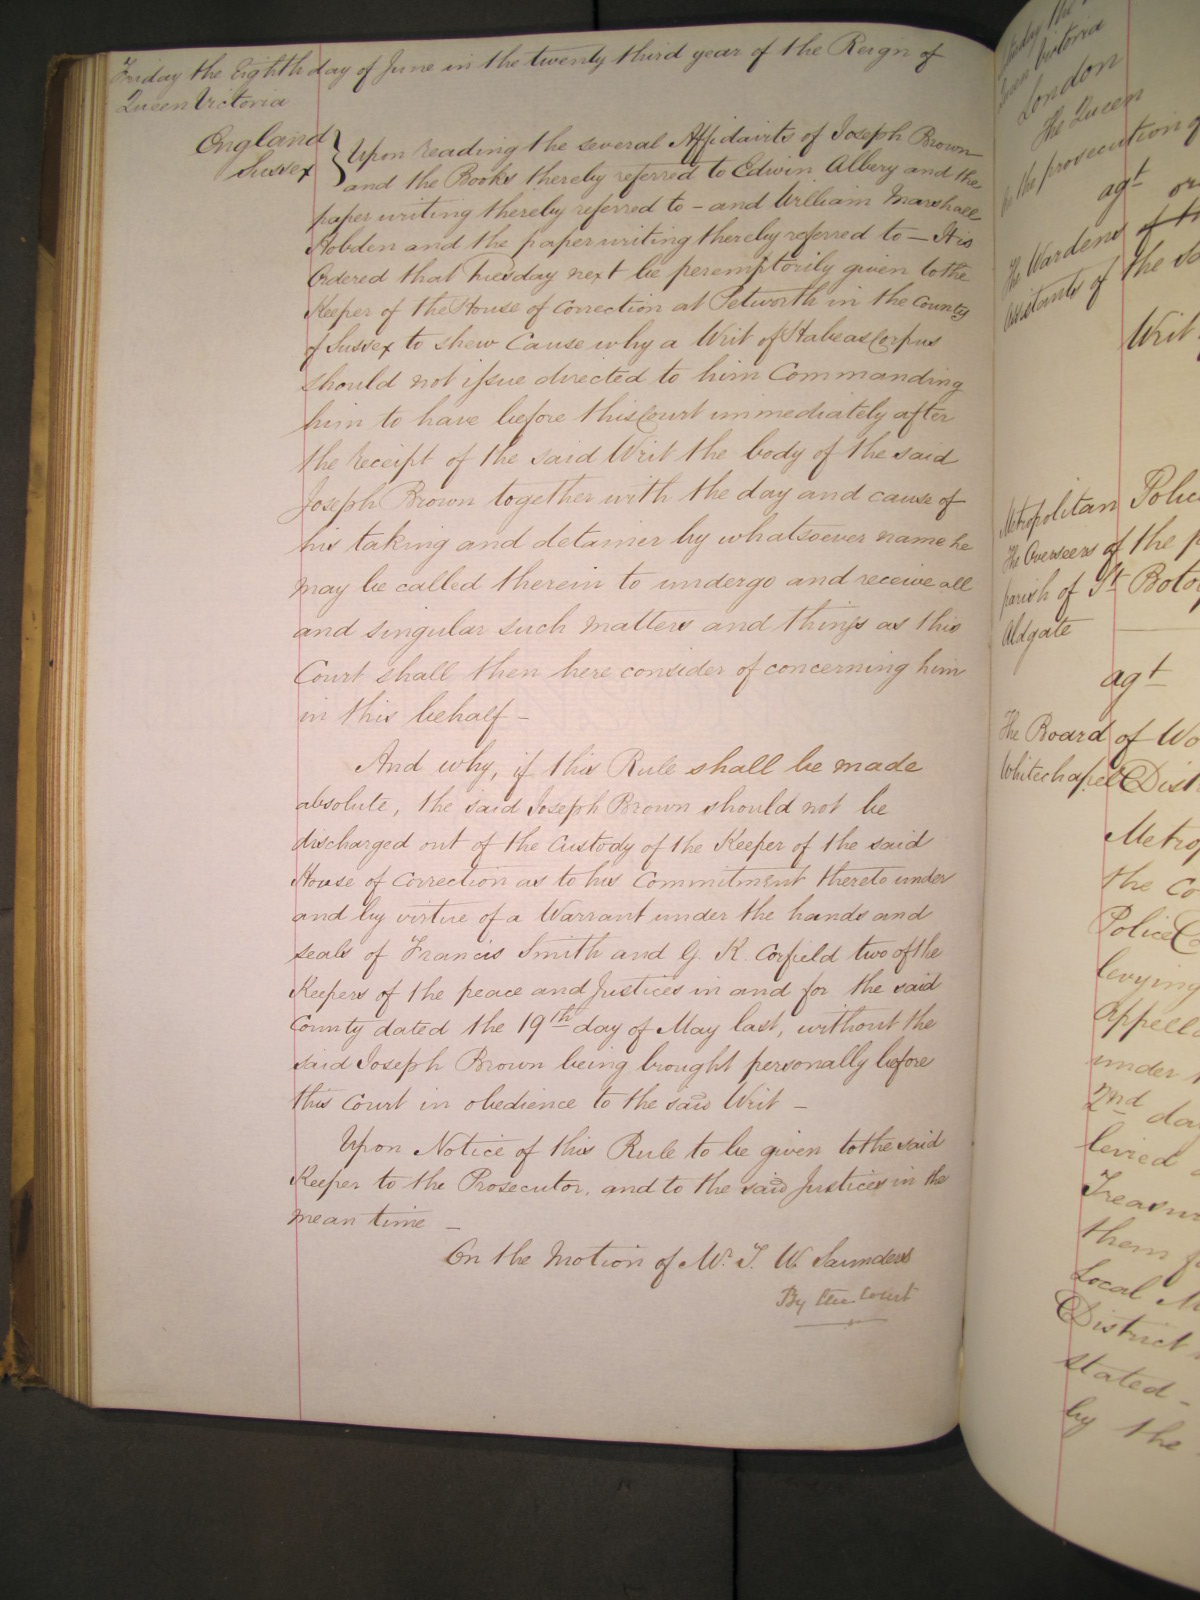 Friday the Eighth day of June in the twenty third year of the Reign of
Queen Victoria
England
Sussex
Upon reading the several Affidavits of Joseph Brown
and the Books thereby referred to Edwin Albery and the
paper writing thereby referred to – and William Marshall
Hobden and the paper writing thereby referred to – It is
Ordered that Tuesday next be peremptorily given to the
Keeper of the House of Correction at Petworth in the County
of Sussex to shew Cause why a Writ of Habeas Corpus
should not issue directed to him Commanding
him to have before this Court immediately after
the receipt of the said Writ the body of the said
Joseph Brown together with the day and cause of
his taking and detainer by whatsoever name he
may be called therein to undergo and receive all
and singular such matters and things as this
Court shall then here consider of concerning him
in this behalf –
And why, if this Rule shall be made
absolute, the said Joseph Brown should not be
discharged out of the Custody of the Keeper of the said
House of Correction as to his Commitment thereto under
and by virtue of a Warrant under the hands and
seals of Francis Smith and G. K. Corfield two of the
Keepers of the peace and Justices in and for the said
County dated the 19th day of May last, without the
said Joseph Brown being brought personally before
this Court in obedience to the said Writ –
Upon Notice of this Rule to be given to the said
Keeper to the Prosecutor, and to the said Justices in the
mean time –
On the Motion of Mr. T. W. Saunders
By the Court
London
The Queen
the prosecution of
agt
The Wardens of the
assistants of the
Writ
Metropolitan Police
The Overseers of the
parish of St Botol
Aldgate
agt
The Board of Wo
Whitechapel Dist
Metrop
the Co
Police Co
levying
Appella
under
2nd day
levied
Treasur
them
Local M
District
stated –
by the